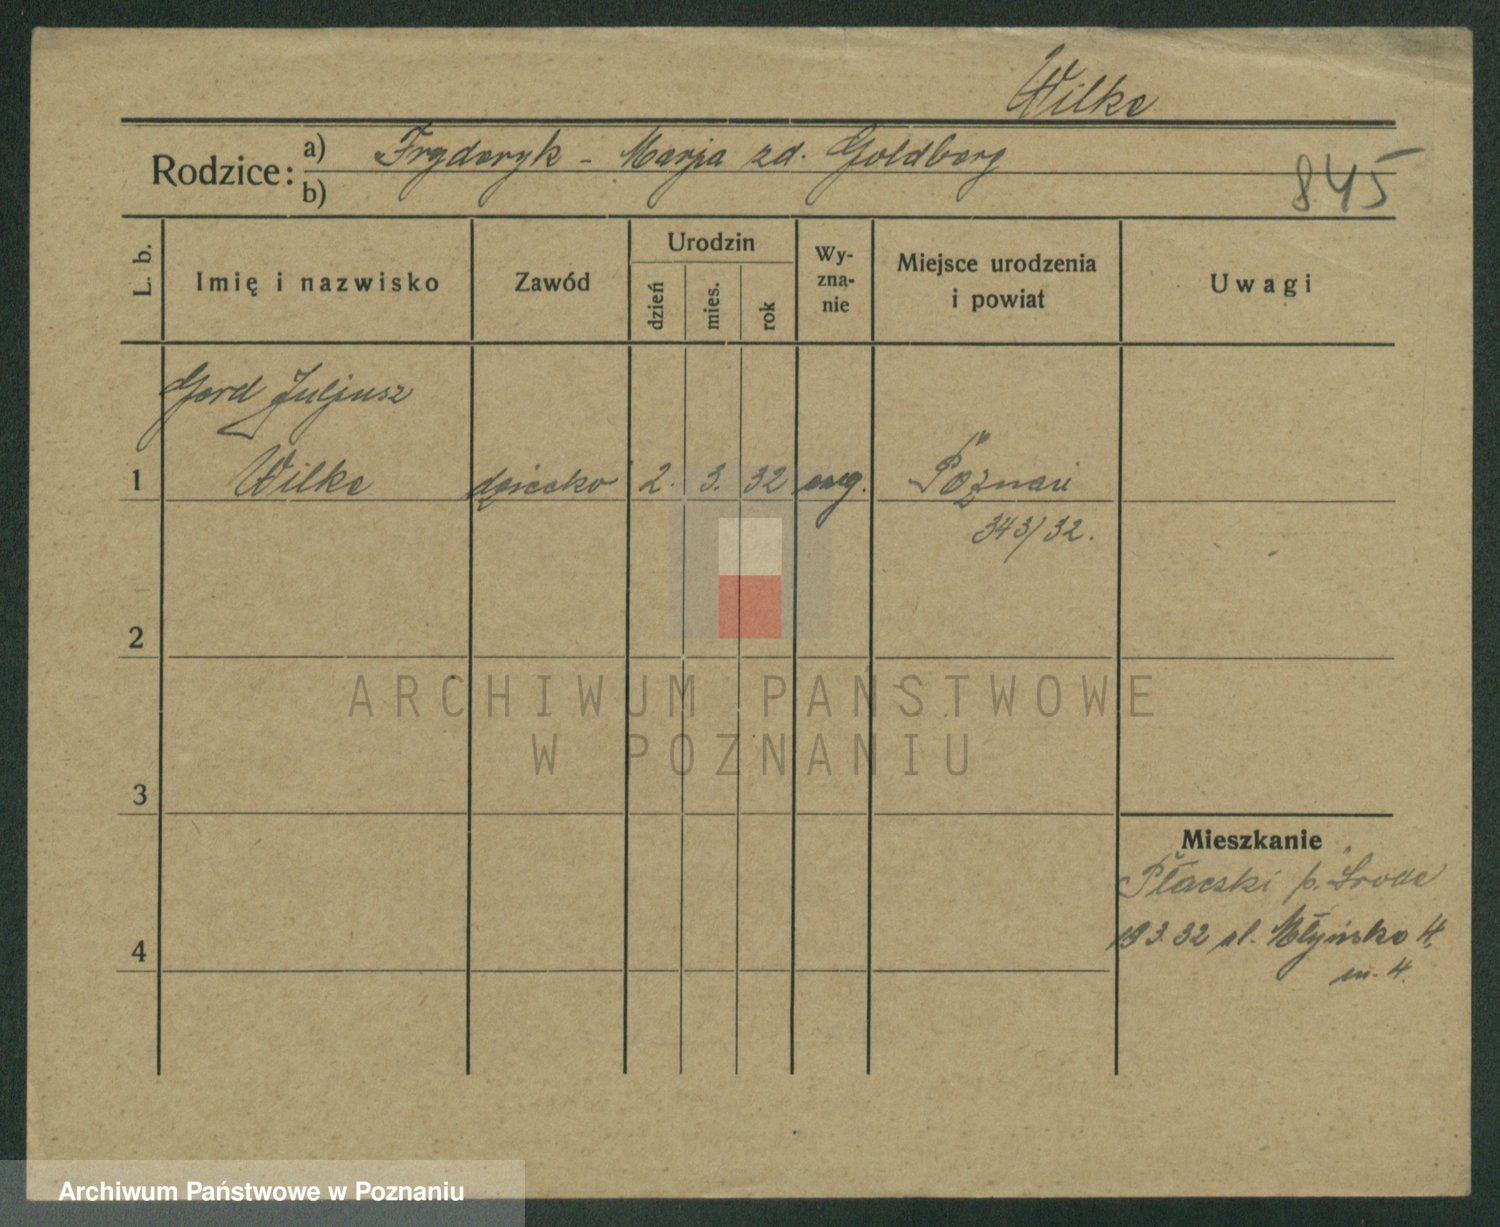 Wilke
Rodzice: a) Fryderyk - Marja zd. Goldberg
b)
845
L. b.
Imię i nazwisko
Zawód
Urodzin
dzień
mies.
rok
Wy-
zna-
nie
Miejsce urodzenia
i powiat
Uwagi
Gerd Juljusz
1 Wilke dziecko 2. 3. 32 ewg. Poznań
343/32.
2
ARCHIWUM PAŃSTWOWE
W POZNANIU
3
Mieszkanie
Płaczki p. Środa
4
19.3.32 ul. Młyńska 4.
m. 4.
Archiwum Państwowe w Poznaniu